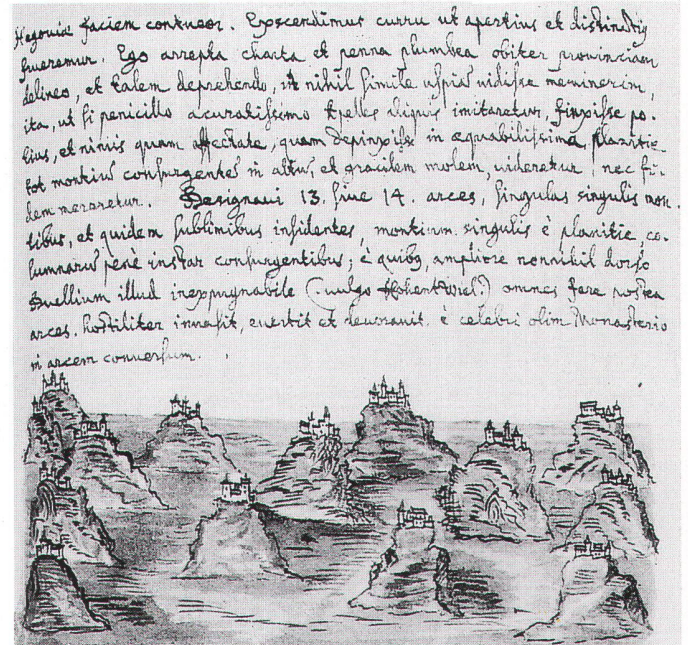 Hegoviæ faciem contueor. Excendimus curru ut apertius et distinctiꝰ
frueremur. Ego arrepta charta et penna plumbea obiter provinciam
delineo, et talem deprehendo, ut nihil simile uspiã vidisse meminerim,
ita, ut si penicillo acuratissimo Apelles aliquis imitaretur, finxisse po-
tius, et nimis quam affectate, quam depinxisse in æquabilissima planitie
tot montiũ consurgentes in altũ, et gracilem molem, videretur, nec fi-
dem mereretur. Designavi 13. sive 14. arces, singulas singulis mon-
tibus, et quidem sublimibus insidentes, montium singulis è planitie, co-
lumnarũ penè instar consurgentibus; è quibꝫ, ampliore nonnihil dorso
Duellium illud inexpugnabile (vulgo Hohentwiel) omnes fere postea
arces hostiliter invasit, evertit et devoravit. è celebri olim Monasterio
in arcem conversum.